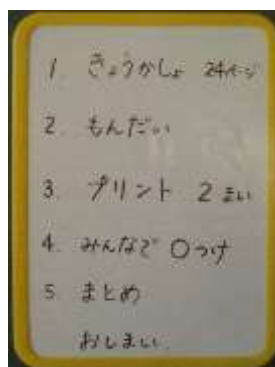 1. きょうかしょ 24ページ
2. もんだい
3. プリント 2まい
4. みんなで ○つけ
5. まとめ
おしまい